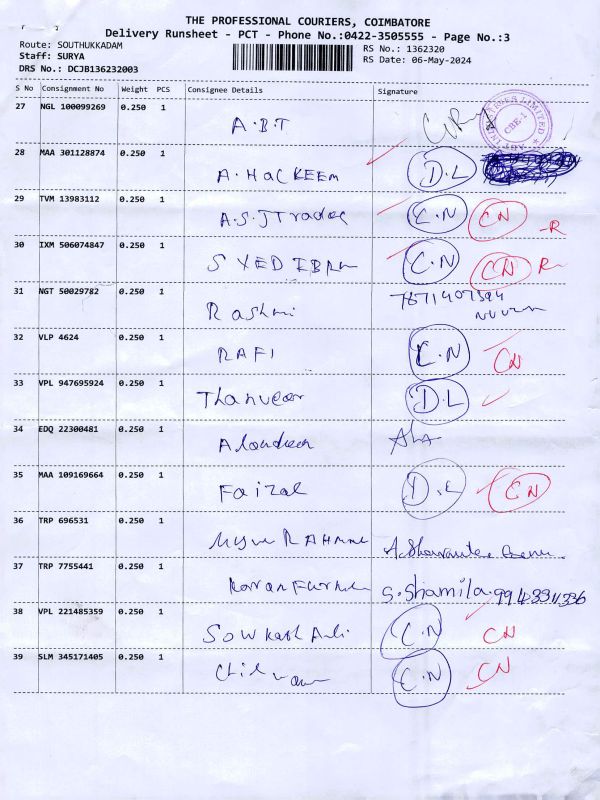 THE PROFESSIONAL COURIERS, COIMBATORE
Delivery Runsheet - PCT - Phone No.:0422-3505555 - Page No.:3
Route: SOUTHUKKADAM RS No.: 1362320
Staff: SURYA RS Date: 06-May-2024
DRS No.: DCJB136232003
S No Consignment No Weight PCS Consignee Details Signature
27 NGL 100099269 0.250 1 A.B.T
CBE-1
28 MAA 301128874 0.250 1 A.HacKEEM D.L
29 TVM 13983112 0.250 1 A.S.J Trades C.N CN -R
30 IXM 506074847 0.250 1 SYED IBRm C.N CN R
31 NGT 50029782 0.250 1 Rashmi
32 VLP 4624 0.250 1 RAFI C.N CN
33 VPL 947695924 0.250 1 Thanveer D.L
34 EDQ 22300481 0.250 1
35 MAA 109169664 0.250 1 Faizal D.L CN
36 TRP 696531 0.250 1 RAHman
37 TRP 7755441 0.250 1 S.Shamila.
38 VPL 221485359 0.250 1 Sowkath Ali C.N CN
39 SLM 345171405 0.250 1 C.N CN